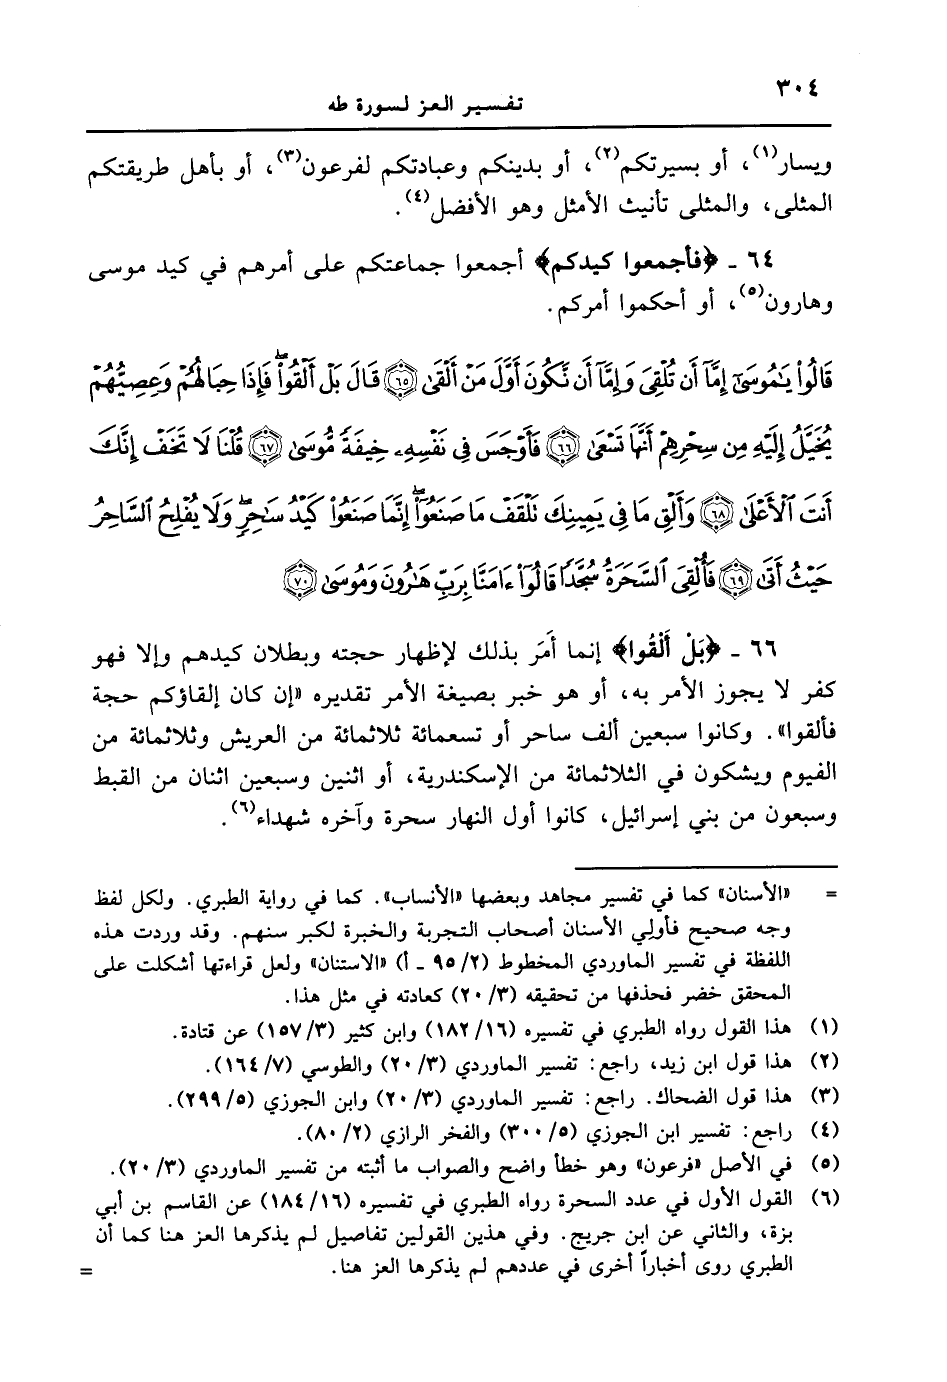 ٣٠٤
تفسير العز لسورة طه
ويسار(١)، أو بسيرتكم(٢)، أو بدينكم وعبادتكم لفرعون(٣)، أو بأهل طريقتكم
المثلى، والمثلى تأنيث الأمثل وهو الأفضل(٤).
٦٤ ـ ﴿فأجمعوا كيدكم﴾ أجمعوا جماعتكم على أمرهم في كيد موسى
وهارون(٥)، أو أحكموا أمركم.
قَالُوا۟ يَٰمُوسَىٰٓ إِمَّآ أَن تُلْقِىَ وَإِمَّآ أَن نَّكُونَ أَوَّلَ مَنْ أَلْقَىٰ ٦٥ قَالَ بَلْ أَلْقُوا۟ۖ فَإِذَا حِبَالُهُمْ وَعِصِيُّهُمْ
يُخَيَّلُ إِلَيْهِ مِن سِحْرِهِمْ أَنَّهَا تَسْعَىٰ ٦٦ فَأَوْجَسَ فِى نَفْسِهِۦ خِيفَةً مُّوسَىٰ ٦٧ قُلْنَا لَا تَخَفْ إِنَّكَ
أَنتَ ٱلْأَعْلَىٰ ٦٨ وَأَلْقِ مَا فِى يَمِينِكَ تَلْقَفْ مَا صَنَعُوٓا۟ۖ إِنَّمَا صَنَعُوا۟ كَيْدُ سَٰحِرٍۖ وَلَا يُفْلِحُ ٱلسَّاحِرُ
حَيْثُ أَتَىٰ ٦٩ فَأُلْقِىَ ٱلسَّحَرَةُ سُجَّدًا قَالُوٓا۟ ءَامَنَّا بِرَبِّ هَٰرُونَ وَمُوسَىٰ ٧٠
٦٦ ـ ﴿بَلْ أَلْقُوا﴾ إنما أمَر بذلك لإظهار حجته وبطلان كيدهم وإلا فهو
كفر لا يجوز الأمر به، أو هو خبر بصيغة الأمر تقديره «إن كان إلقاؤكم حجة
فألقوا». وكانوا سبعين ألف ساحر أو تسعمائة ثلاثمائة من العريش وثلاثمائة من
الفيوم ويشكون في الثلاثمائة من الإسكندرية، أو اثنين وسبعين اثنان من القبط
وسبعون من بني إسرائيل، كانوا أول النهار سحرة وآخره شهداء(٦).
= «الأسنان» كما في تفسير مجاهد وبعضها «الأنساب». كما في رواية الطبري. ولكل لفظ
وجه صحيح فأولي الأسنان أصحاب التجربة والخبرة لكبر سنهم. وقد وردت هذه
اللفظة في تفسير الماوردي المخطوط (٢/ ٩٥ ـ أ) «الاستنان» ولعل قراءتها أشكلت على
المحقق خضر فحذفها من تحقيقه (٣/ ٢٠) كعادته في مثل هذا.
(١) هذا القول رواه الطبري في تفسيره (١٦/ ١٨٢) وابن كثير (٣/ ١٥٧) عن قتادة.
(٢) هذا قول ابن زيد، راجع: تفسير الماوردي (٣/ ٢٠) والطوسي (٧/ ١٦٤).
(٣) هذا قول الضحاك. راجع: تفسير الماوردي (٣/ ٢٠) وابن الجوزي (٥/ ٢٩٩).
(٤) راجع: تفسير ابن الجوزي (٥/ ٣٠٠) والفخر الرازي (٢/ ٨٠).
(٥) في الأصل «فرعون» وهو خطأ واضح والصواب ما أثبته من تفسير الماوردي (٣/ ٢٠).
(٦) القول الأول في عدد السحرة رواه الطبري في تفسيره (١٦/ ١٨٤) عن القاسم بن أبي
بزة، والثاني عن ابن جريج. وفي هذين القولين تفاصيل لم يذكرها العز هنا كما أن
الطبري روى أخباراً أخرى في عددهم لم يذكرها العز هنا. =